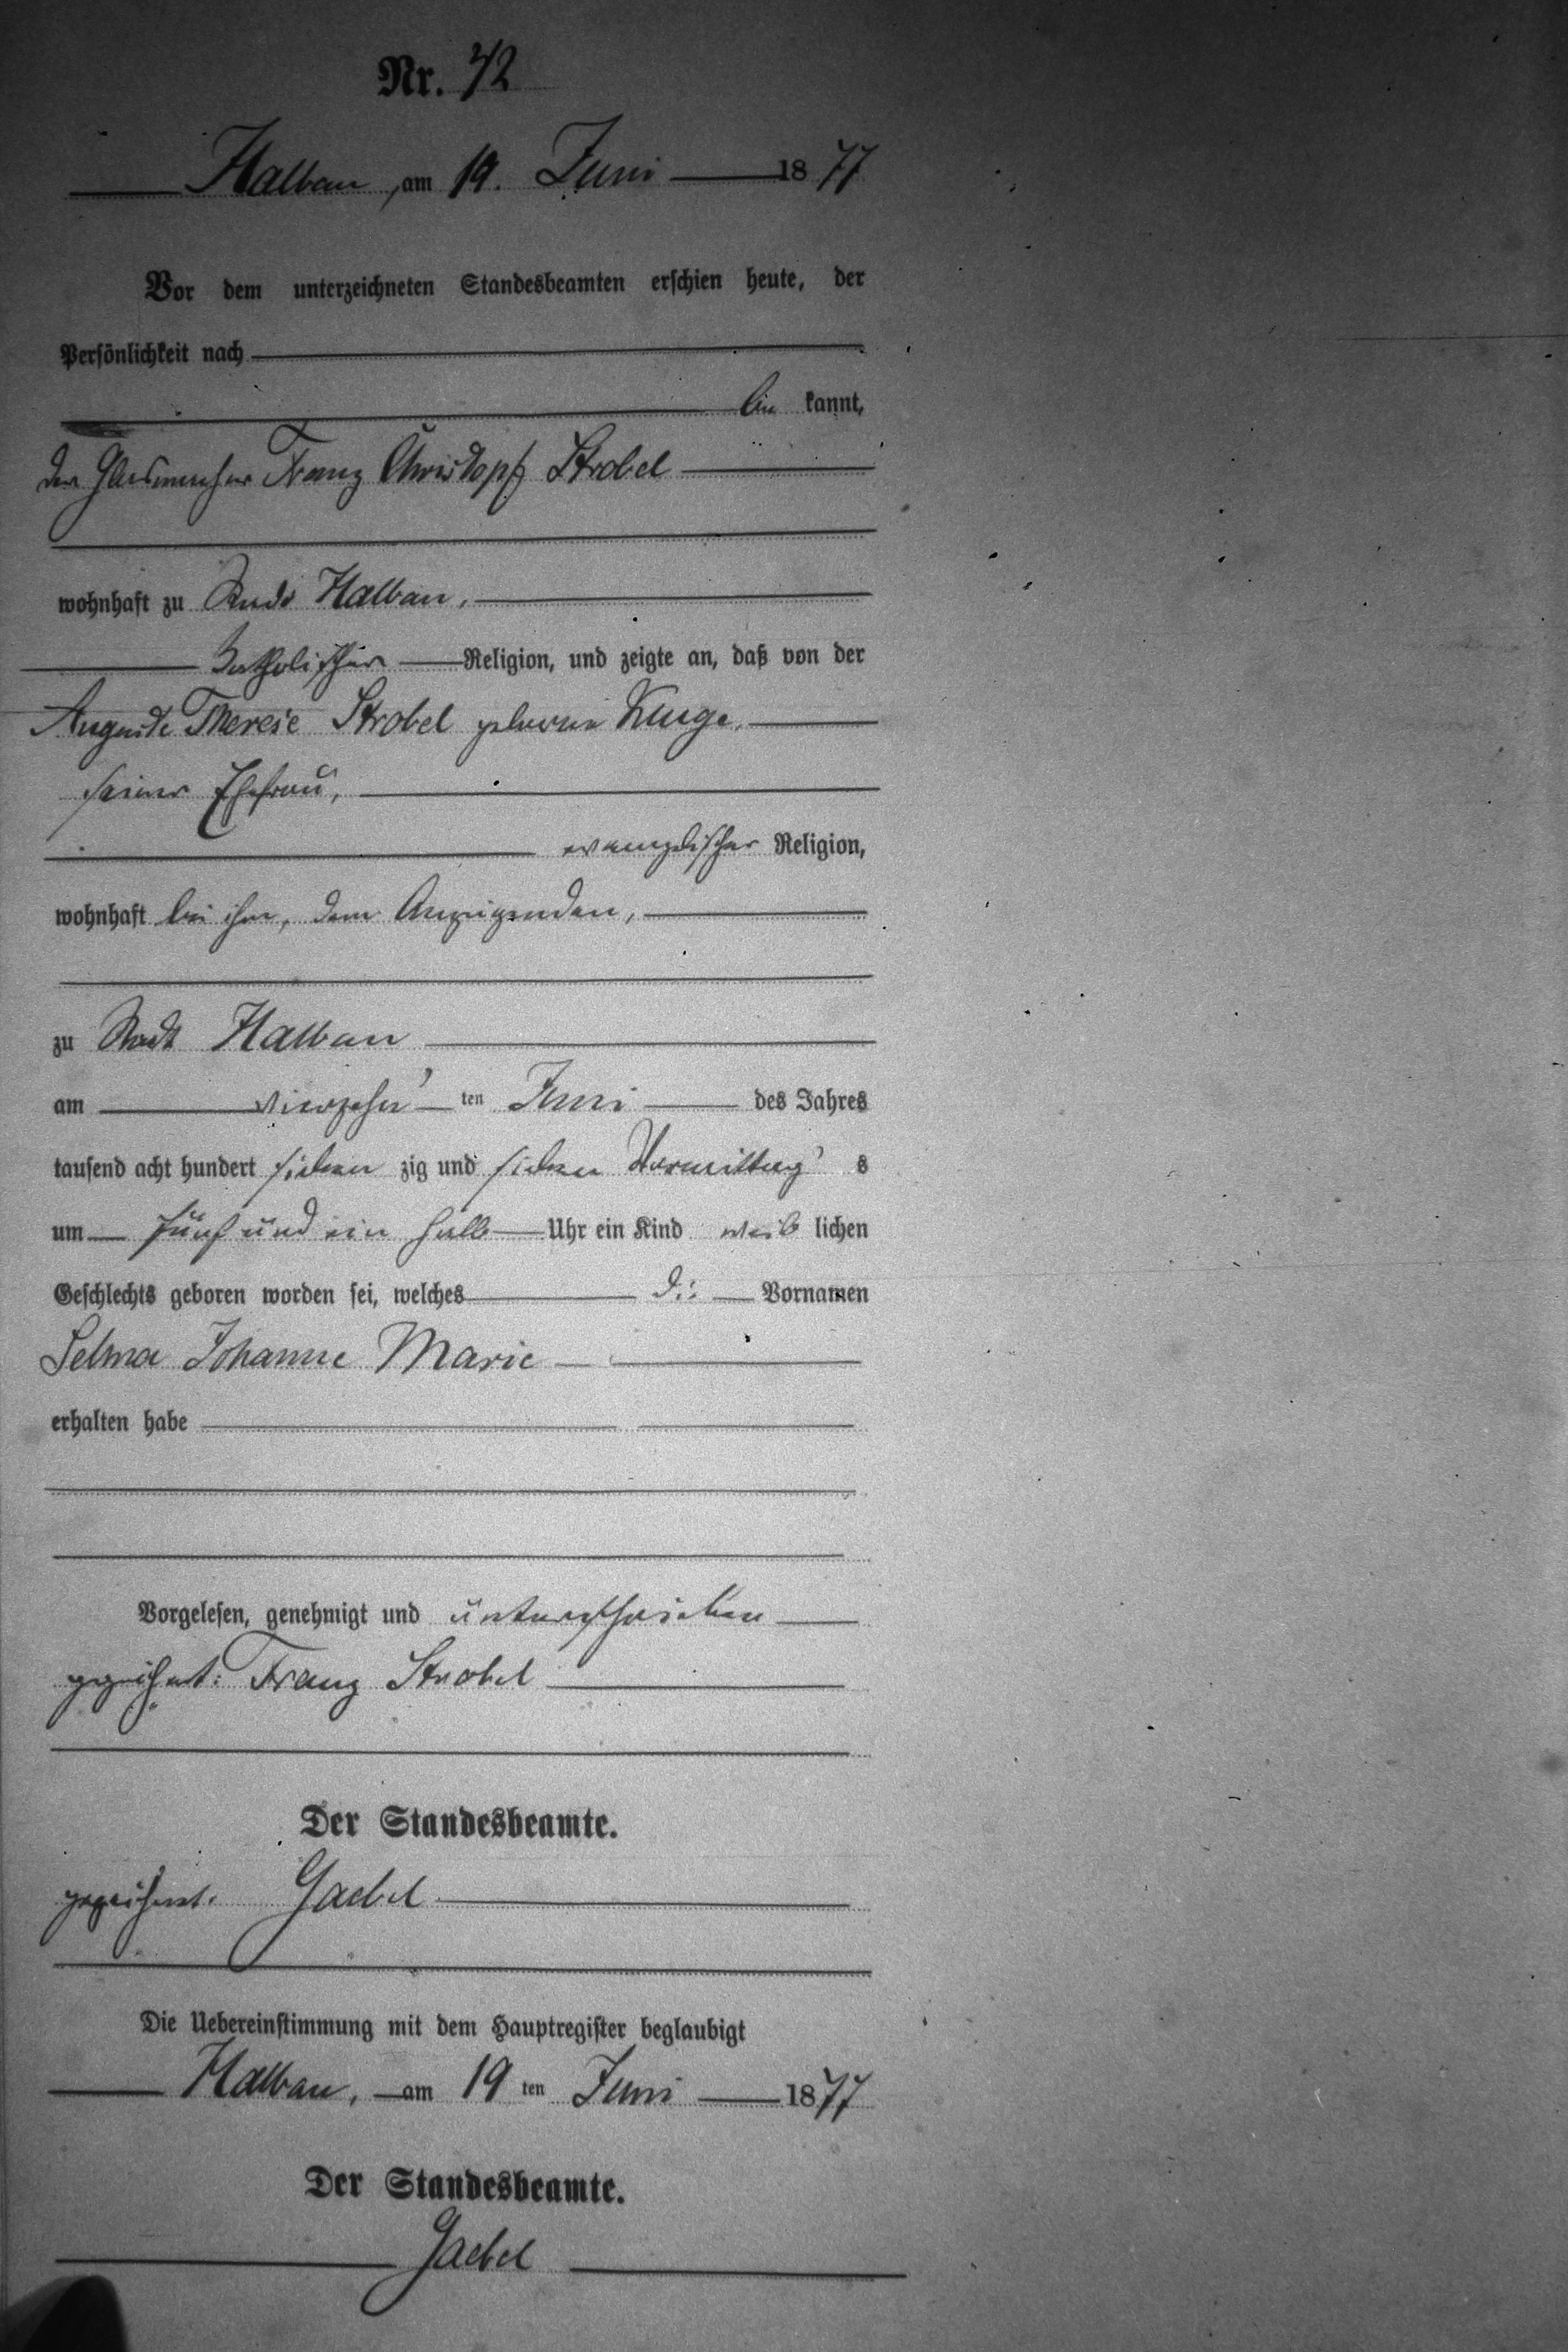 Nr. 42
Halbau, am 19. Juni 1877
Vor dem unterzeichneten Standesbeamten erschien heute, der
Persönlichkeit nach
be kannt,
der Glasmacher Franz Christoph Strobel
wohnhaft zu Stadt Halbau,
katholischer Religion, und zeigte an, daß von der
Auguste Therese Strobel geborene Kluge,
seiner Ehefrau,
evangelischer Religion,
wohnhaft bei ihm, dem Anzeigenden,
zu Stadt Halbau
am vierzehn ten Juni des Jahres
tausend acht hundert sieben zig und sieben Vormittag s
um fünf und ein halb Uhr ein Kind weib lichen
Geschlechts geboren worden sei, welches die Vornamen
Selma Johanne Marie
erhalten habe
Vorgelesen, genehmigt und unterschrieben
gezeichnet: Franz Strobel
Der Standesbeamte.
gezeichnet. Gaebel
Die Uebereinstimmung mit dem Hauptregister beglaubigt
Halbau, am 19 ten Juni 1877
Der Standesbeamte.
Gaebel